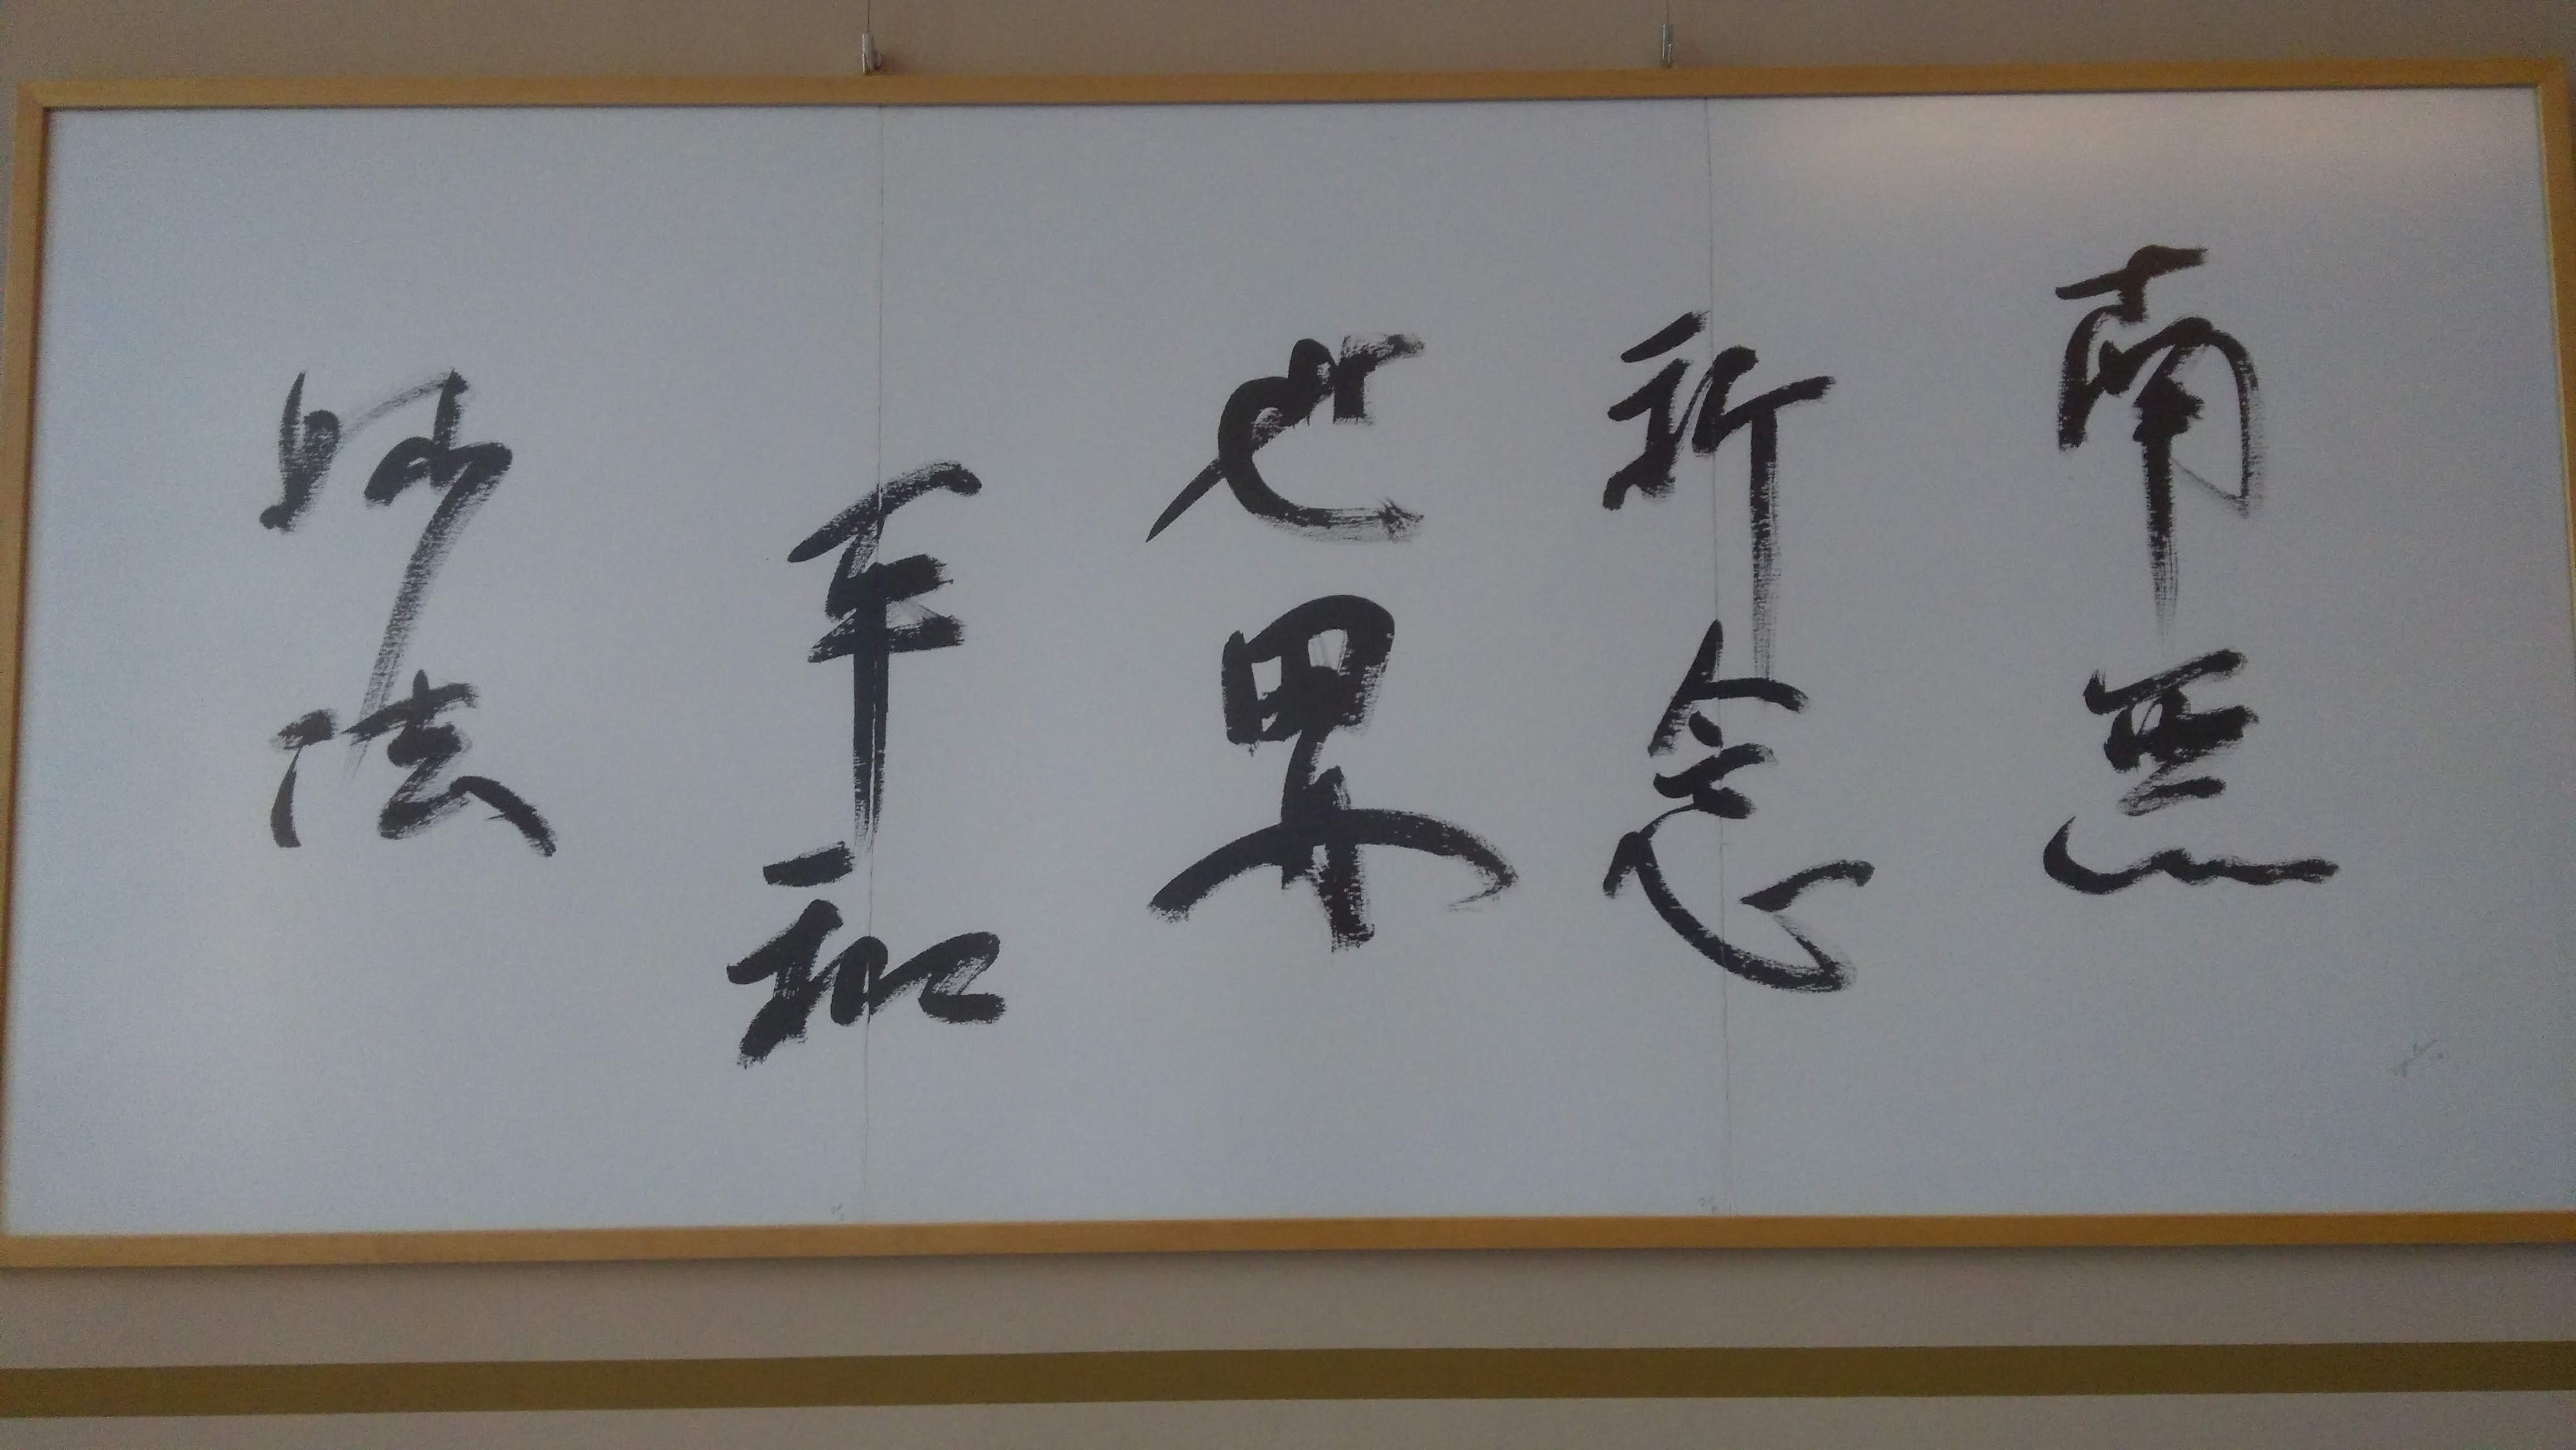 南無
祈念
世界
平和
妙法